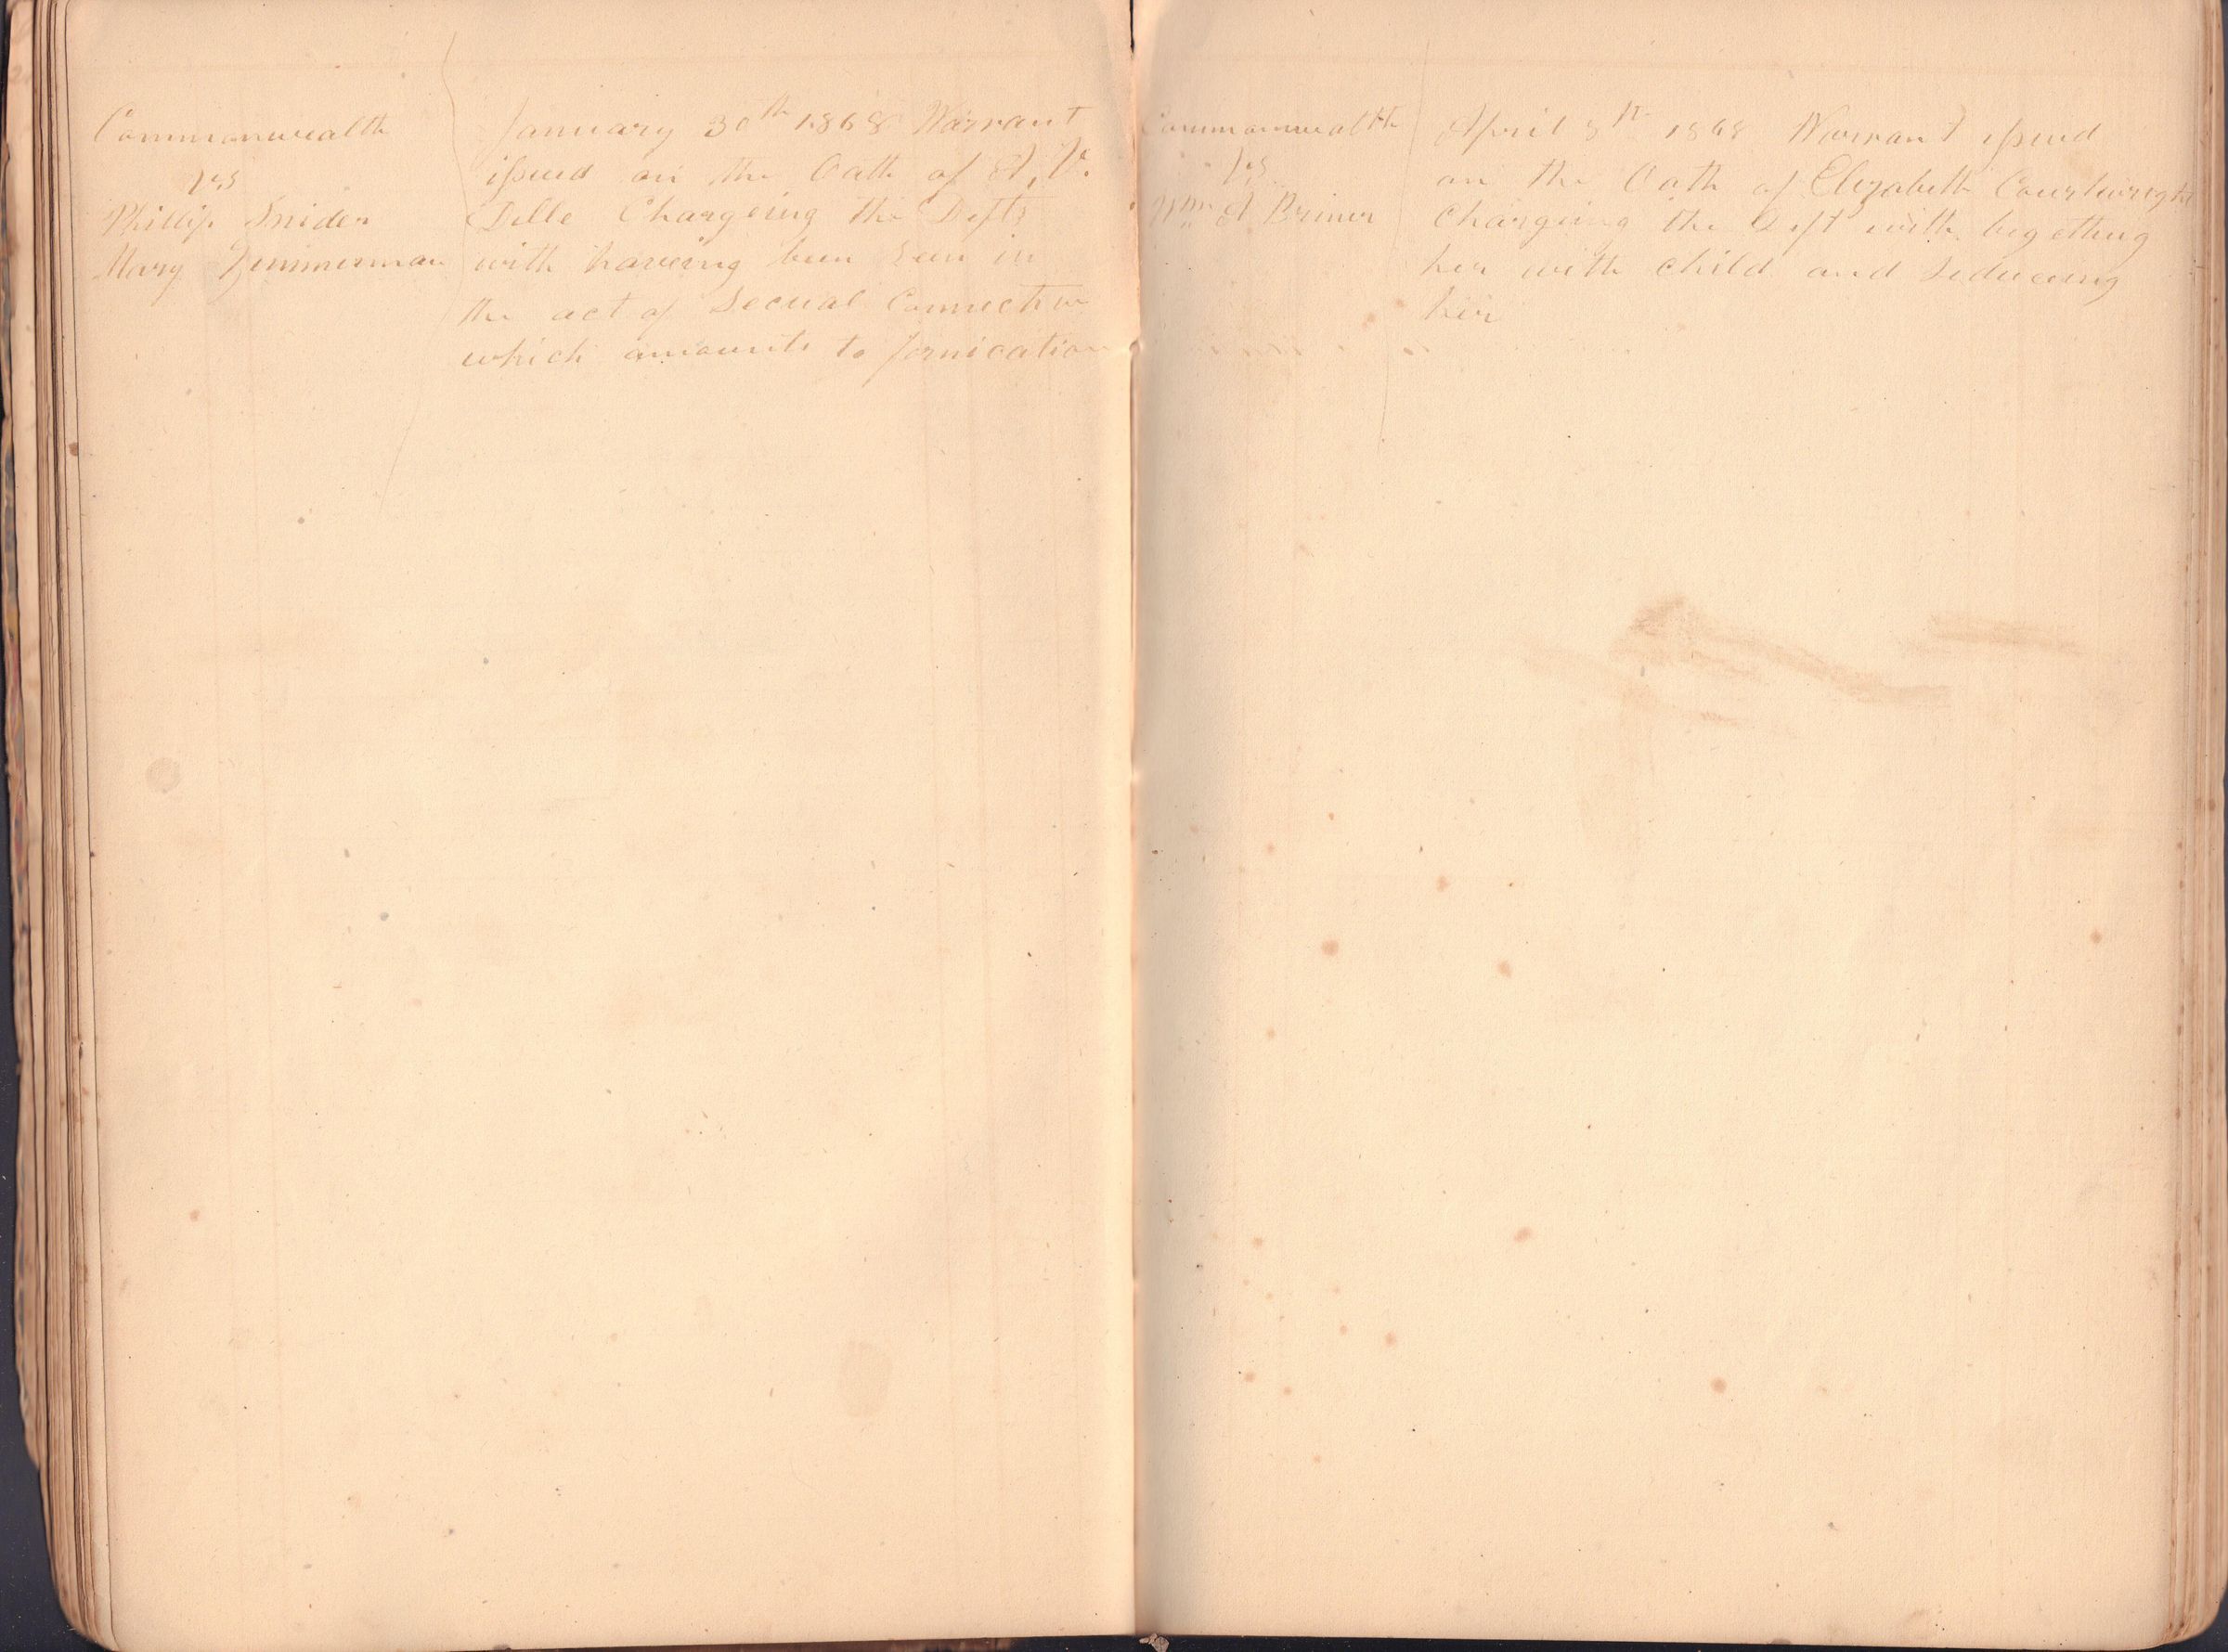 Commonwealth
vs
Phillip Snider
Mary Zimmerman
January 30th 1868 Warrant
issued on the Oath of A. V.
Dille Chargeing the Defts
with haveing been seen in
the act of Secual Connection
which amounts to fornication
Commonwealth
vs
Wm A Briner
April 8th 1868 Warrant issued
on the Oath of Elizabeth Courtwright
Chargeing the Deft with begetting
her with child and seduceing
her